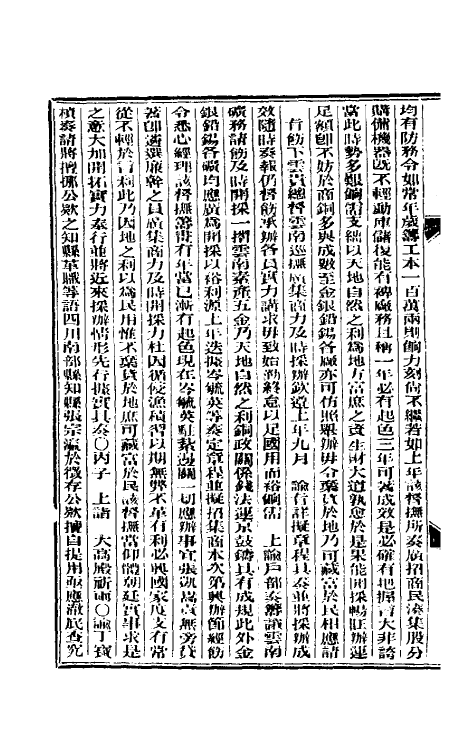 均有防務令如常年歲籌工本一百萬兩則餉力刻尚不繼若如上年該督撫所奏廣招商民湊集股分
購備機器既不輕動庫儲復能有裨廠務且稱一年必有起色三年可著成效是必確有把握言大非誇
當此時勢多艱餉需支絀以天地自然之利為地方富庶之資生財大道孰愈於是果能開採暢旺辦運
足額卽不妨於商銅多與成數至金銀鉛錫各廠亦可仿照舉辦毋令棄貨於地乃可藏富於民相應請
旨飭下雲貴總督雲南巡撫廣集商力及時採辦欽遵上年九月　諭旨詳擬章程具奏並將採辦成
效隨時奏報仍督飭承辦各員實力講求毋致始勤終怠以足國用而裕餉需　上諭戶部奏籌議雲南
礦務請飭及時開採一摺雲南素產五金乃天地自然之利銅政關係錢法運京鼓鑄具有成規此外金
銀鉛錫各礦均應廣為開採以裕利源上年迭據岑毓英等奏定章程並擬招集商本次第興辦節經飭
令悉心經理該督撫籌畫有年當已漸有起色現在岑毓英駐紮邊關一切應辦事宜張凱嵩責無旁貸
著卽遴選廉幹之員廣集商力及時開採力杜因循侵漁積習以期無弊不革有利必興國家度支有常
從不輕於言利此乃因地之利以為民用惟不棄貨於地庶可藏富於民該督撫當仰體朝廷實事求是
之意大加開拓實力奉行並將近來採辦情形先行據實具奏〇丙子　上詣　大高殿祈雨〇諭丁寶
楨奏請將擅挪公款之知縣革職等語四川南部縣知縣張宗瀛於徵存公款擅自提用亟應澈底查究